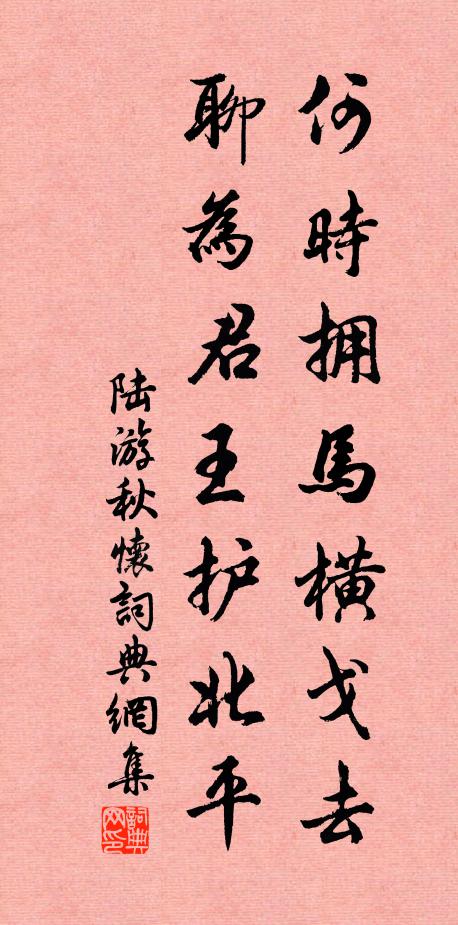 何時拥馬橫戈去
聊為君王护北平
陆游秋懷詞典網集
詞典网印